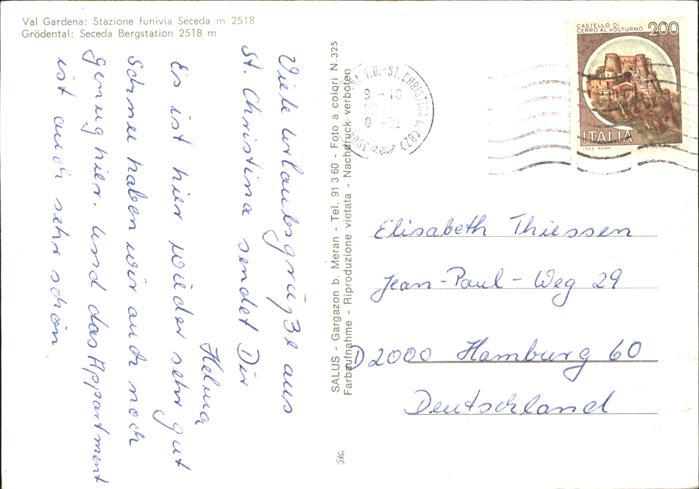 Val Gardena: Stazione funivia Seceda m 2518
Grödental: Seceda Bergstation 2518 m
Viele Urlaubsgrüße aus
St. Christina sendet Dir
Helma
Es ist hier wieder sehr gut
Schnee haben wir auch noch
genug hier. Und das Appartment
ist auch sehr schön.
SALUS - Gargazon b. Meran - Tel. 91 3 60 - Foto a colori N 325
Farbaufnahme - Riproduzione vietata - Nachdruck verboten
ST. CHRISTINA
(BZ)
CASTELLO DI
CERRO AL VOLTURNO
200
ITALIA
Elisabeth Thiessen
Jean-Paul-Weg 29
D 2000 Hamburg 60
Deutschland